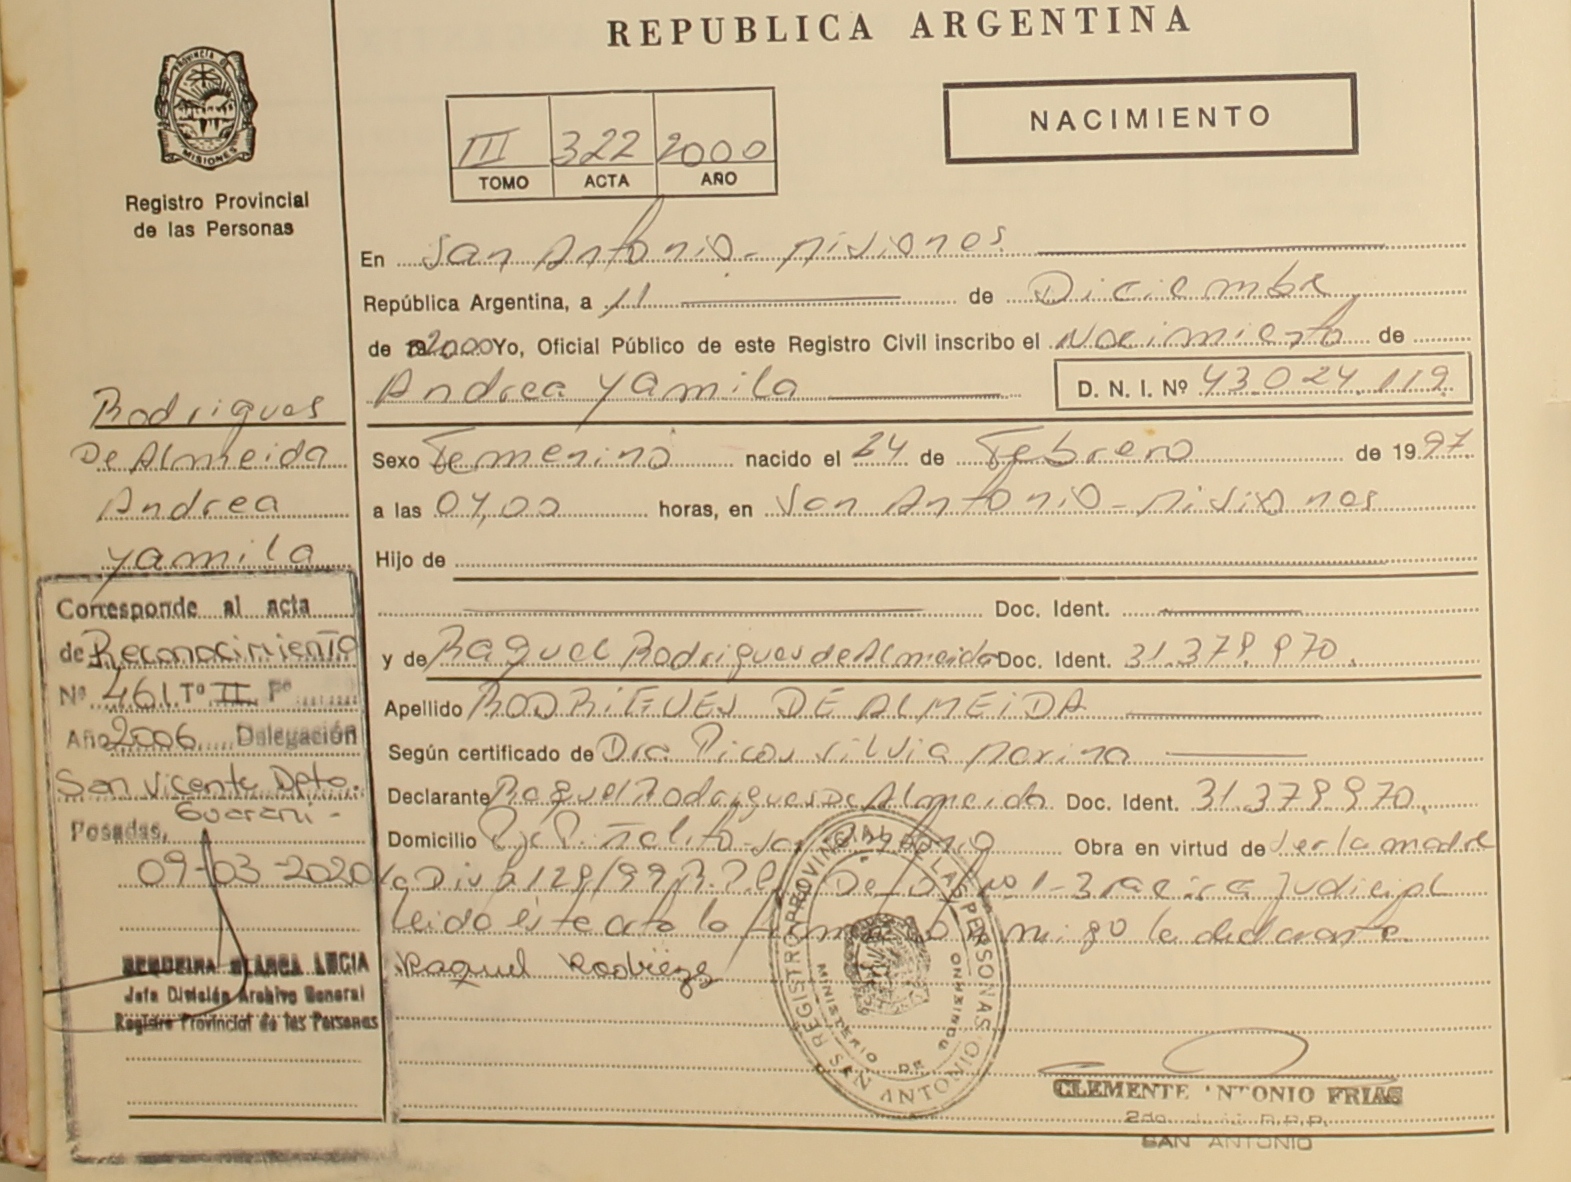 REPUBLICA ARGENTINA
PROVINCIA DE MISIONES
Registro Provincial
de las Personas
NACIMIENTO
III 322 2000
TOMO ACTA AÑO
En San Antonio - Misiones
República Argentina, a 11 de Diciembre
de 2000 Yo, Oficial Público de este Registro Civil inscribo el Nacimiento de
Andrea Yamila D. N. I. Nº 43.024.119
Sexo Femenino nacido el 24 de Febrero de 1997
a las 04,00 horas, en San Antonio - Misiones
Hijo de
Doc. Ident.
y de Raquel Rodrigues de Almeida Doc. Ident. 31.379.970.
Apellido RODRIGUES DE ALMEIDA
Según certificado de Dra. Picos Silvia Marina
Declarante Raquel Rodrigues De Almeida Doc. Ident. 31.379.970.
Domicilio San Antonio Obra en virtud de ser la madre
Judicial
leido este acto lo firma conmigo la declarante.
Raquel Rodriges
Rodrigues
De Almeida
Andrea
Yamila
Corresponde al acta
de Reconocimiento
Nº 461 Tº II Fº
Año 2006 Delegación
San Vicente Dpto.
Guaraní -
Posadas,
09-03-2020
BLANCA LUCIA
Jefa División Archivo General
Registro Provincial de las Personas
REGISTRO PROVINCIAL DE LAS PERSONAS
MINISTERIO DE GOBIERNO
SAN ANTONIO
CLEMENTE ANTONIO FRIAS
R.P.P.
SAN ANTONIO